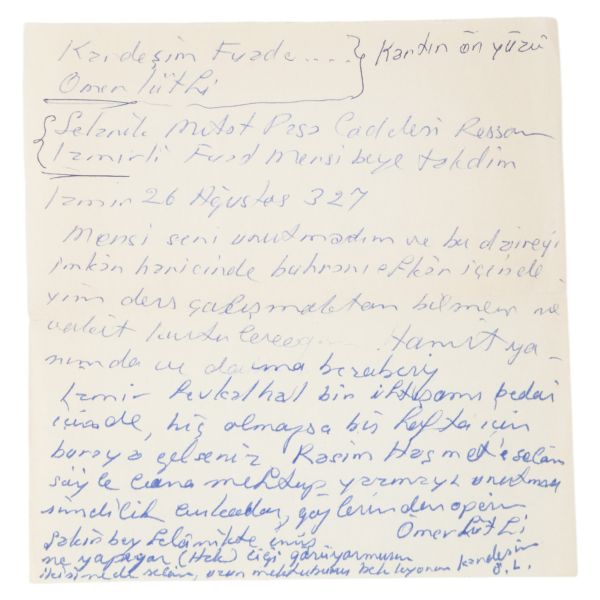 Kardeşim Fuada .... Kartın ön yüzü
Ömer Lütfi
Selanik Mitat Paşa Caddesi Ressam
İzmirli Fuad Mensi beye takdim
İzmir 26 Ağustos 327
Mensi seni unutmadım ve bu daireyi
imkân haricinde buhranı efkâr içinde
yim ders çalışmaktan bilmem ne
vakit kurtulacağım. Hamit ya-
nımda ve daima beraberiz
İzmir fevkalhal bir ihtişamı bedai
içinde, hiç olmazsa bir hafta için
buraya gelseniz Rasim Haşmet'e selâm
söyle bana mektup yazmayı unutması
şimdilik bu kadar, gözlerinden öperim
Ömer Lütfi
Şakir bey Selânikte imiş
ne yapıyor (Hak) ciği görüyormusun
ikisine de selâm, uzun mektubunu bekliyorum kardeşim
Ö. L.